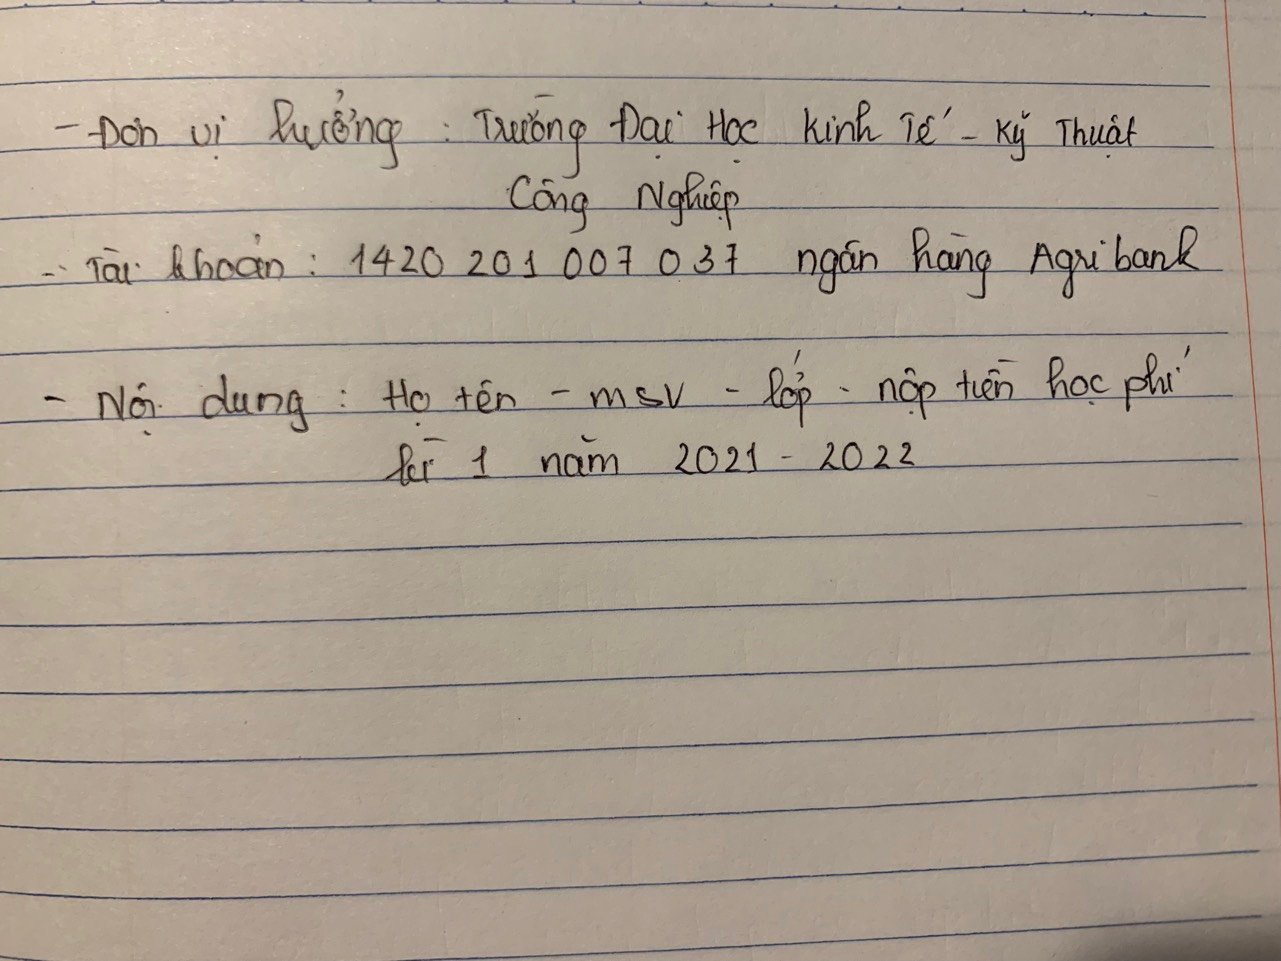 - Đơn vị hưởng : Trường Đại Học Kinh Tế - Kỹ Thuật
Công Nghiệp
- Tài khoản : 1420 201 007 037 ngân hàng Agribank
- Nội dung : Họ tên - msv - lớp - nộp tiền học phí
kì 1 năm 2021 - 2022